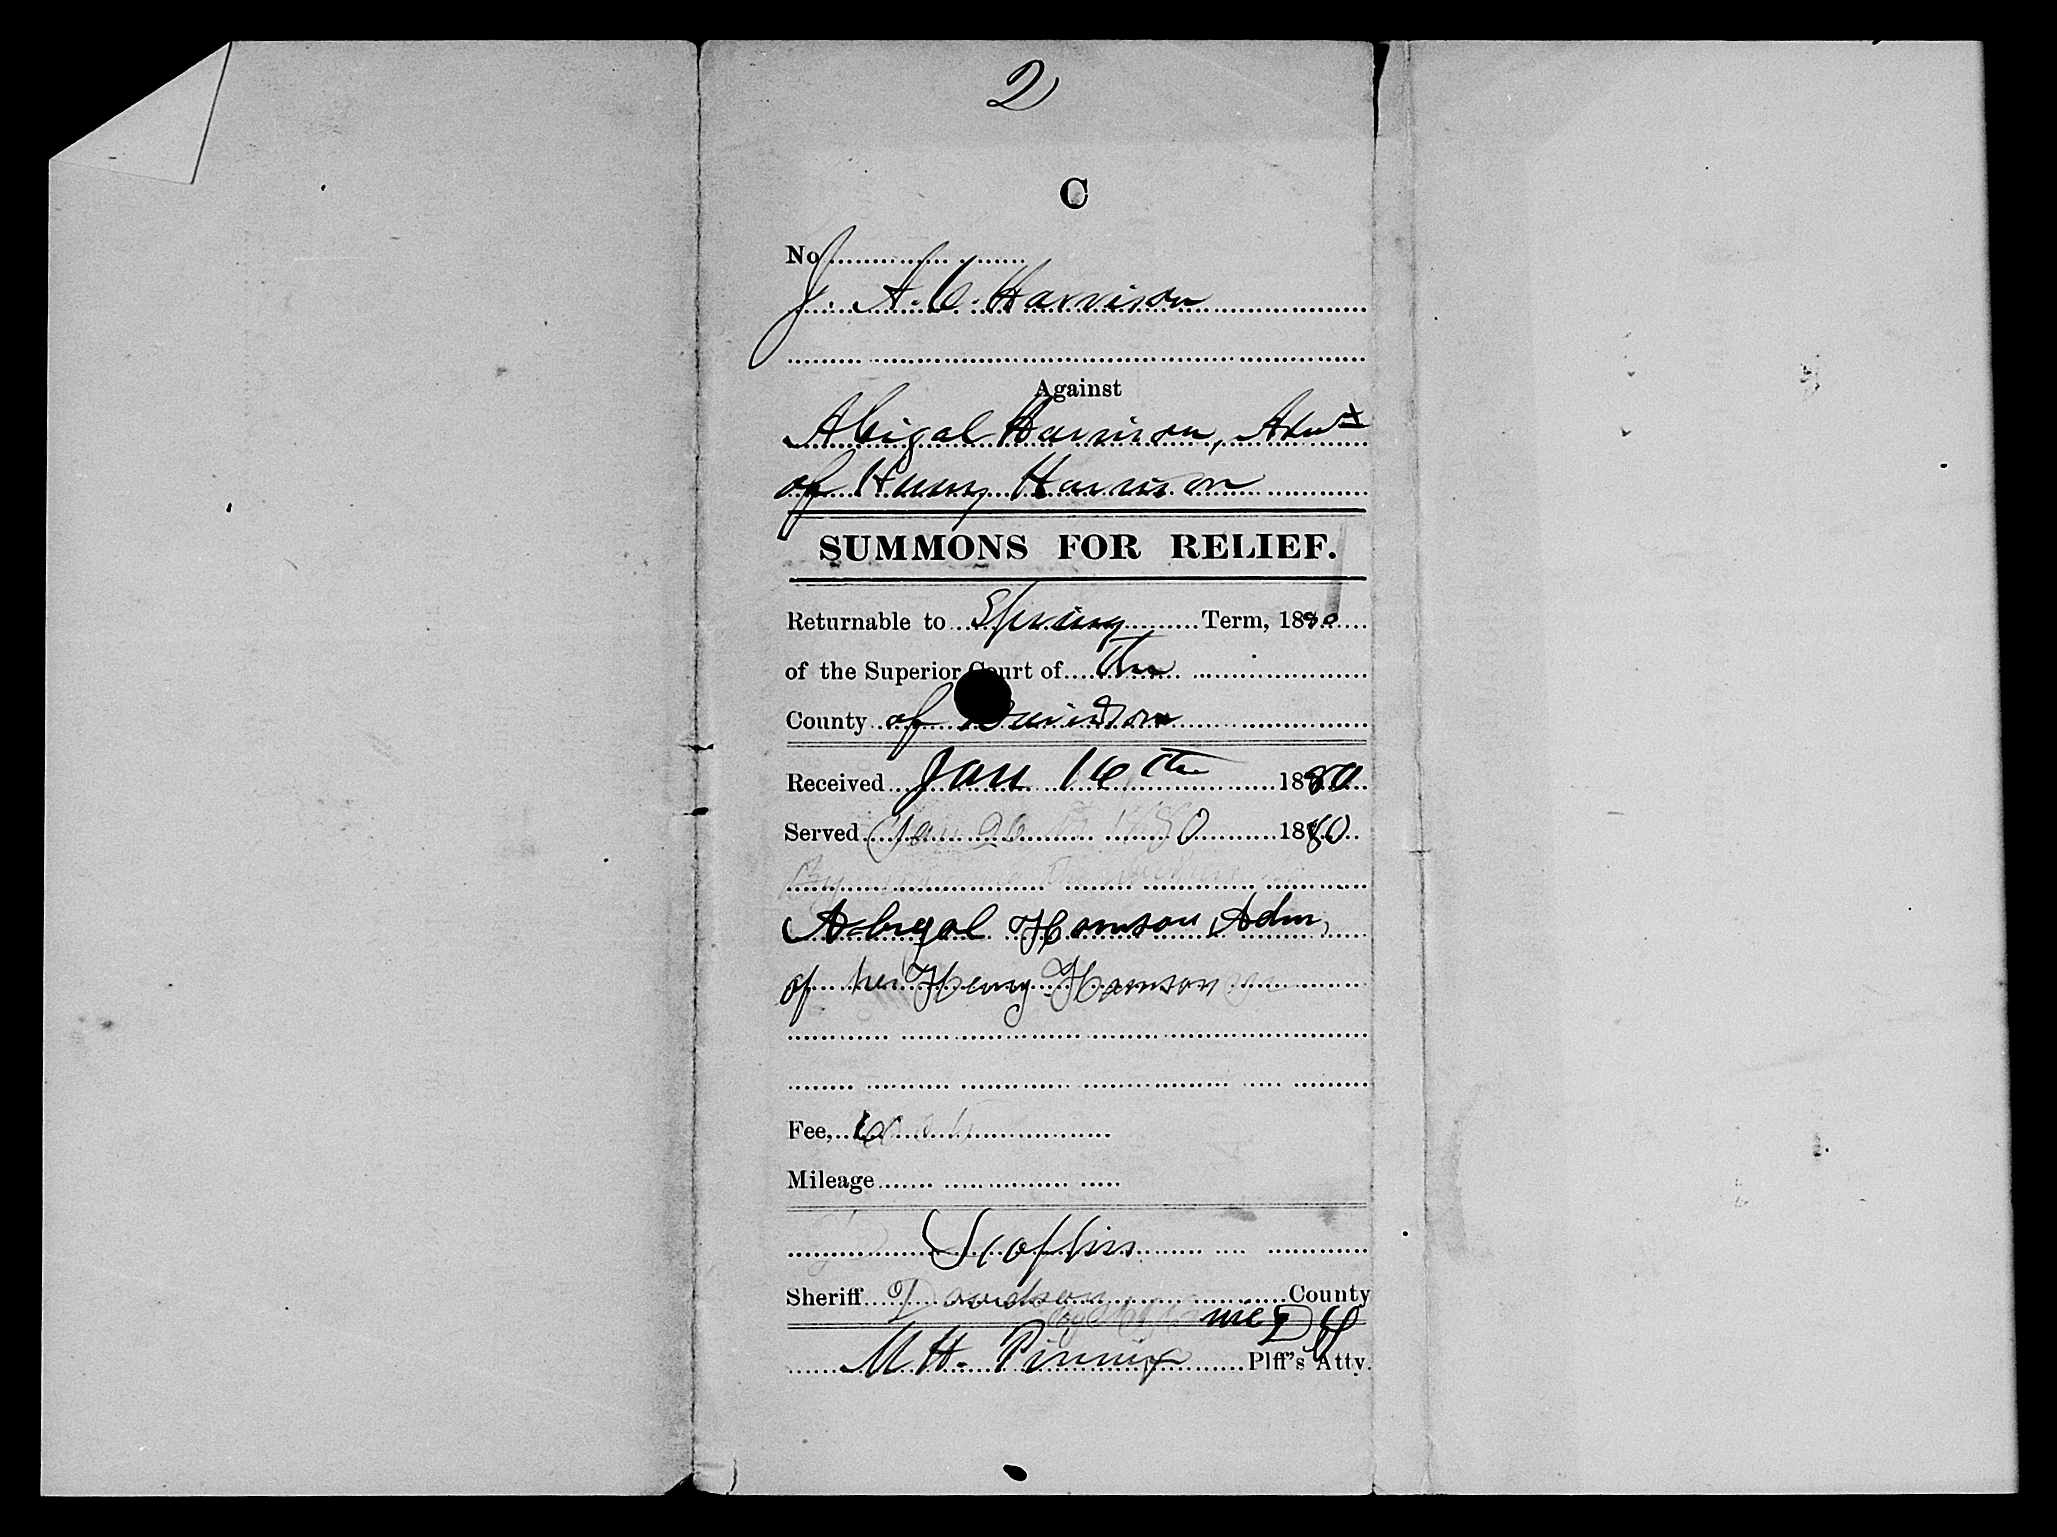 2
C
No
J. A. C. Harrison
Against
Abigal Harrison, Admx
of Henry Harrison
SUMMONS FOR RELIEF.
Returnable to Spring Term, 1880
of the Superior Court of the
County of Davidson
Received Jan 16th 1880
Served Jan 26 1880 1880
By
Abigal Harrison Adm,
of her Henry Harrison
Fee,
Mileage
Sheriff Davidson County
M H. Pinnix Plff's Atty.